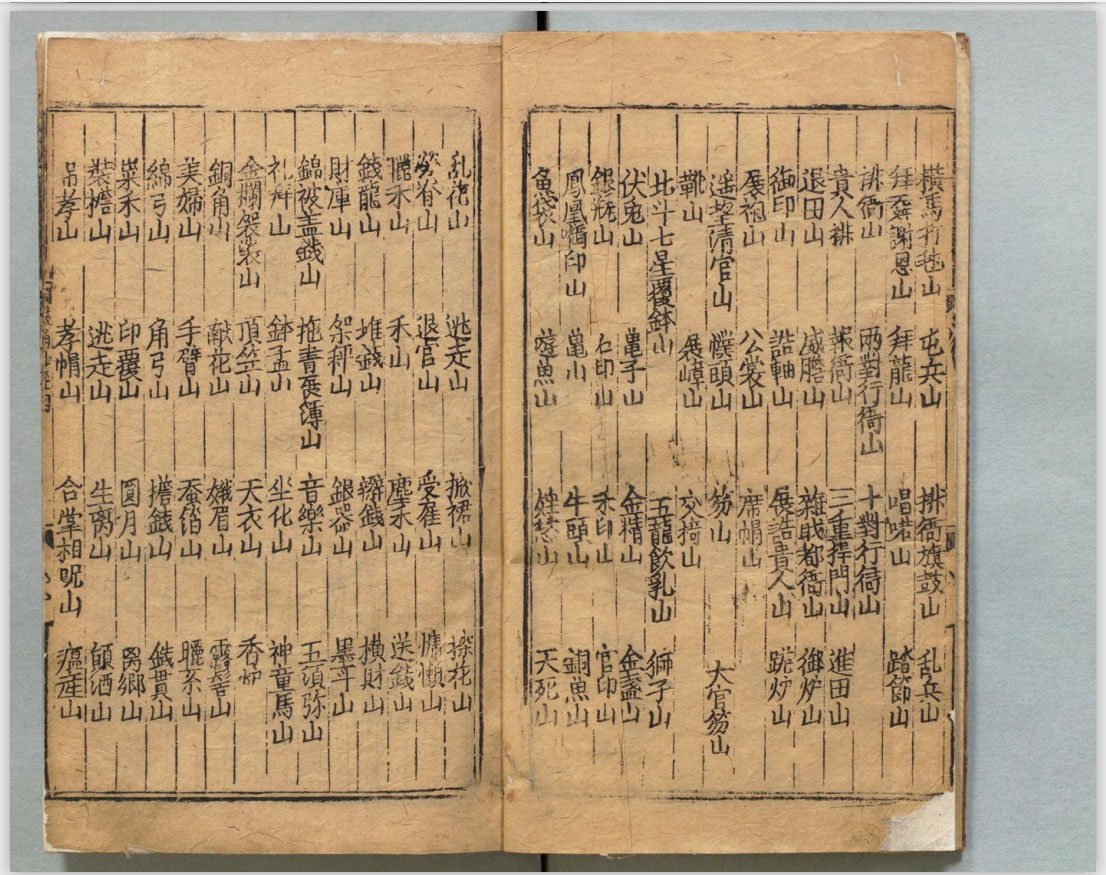 橫馬打毬山 屯兵山 排衙旗鼓山 乱兵山
拜舞謝恩山 拜龍山 唱喏山 踏節山
排衙山 兩對行衙山 十對行衙山
貴人排 報衙山 三重捍門山 進田山
退田山 威膽山 雜戢都衙山 御炉山
御印山 誥軸山 展誥貴人山 踞炉山
展袍山 公裳山 席帽山
遥望清官山 幞頭山 笏山 大官笏山
靴山 展嶂山 交搞山
北斗七星覆鉢山 五龍飲乳山 獅子山
伏兎山 亀子山 金精山 金盞山
銀瓶山 石印山 禾印山 官印山
鳳凰啣印山 亀山 牛頭山 銅魚山
魚袋山 遊魚山 山 天死山
乱花山 逃走山 掀裙山 探花山
山 退官山 受雇山 慵懶山
禾山 禾山 塵禾山 送錢山
錢龍山 堆錢山 辮錢山 橫財山
財庫山 架秤山 銀器山 墨斗山
錦被盖錢山 拖書展薄山 音樂山 五須弥山
礼拜山 鉢盂山 坐化山 神童馬山
金襴袈裟山 頂笠山 天衣山 香炉
銅角山 献花山 娥眉山 露髻山
美婦山 手臂山 蚕箔山 曬糸山
綿弓山 角弓山 擔錢山 錢貫山
禾山 印覆山 圓月山 离鄉山
裝擔山 逃走山 生离山 顛酒山
吊孝山 孝帽山 合掌相呪山 瘟瘟山